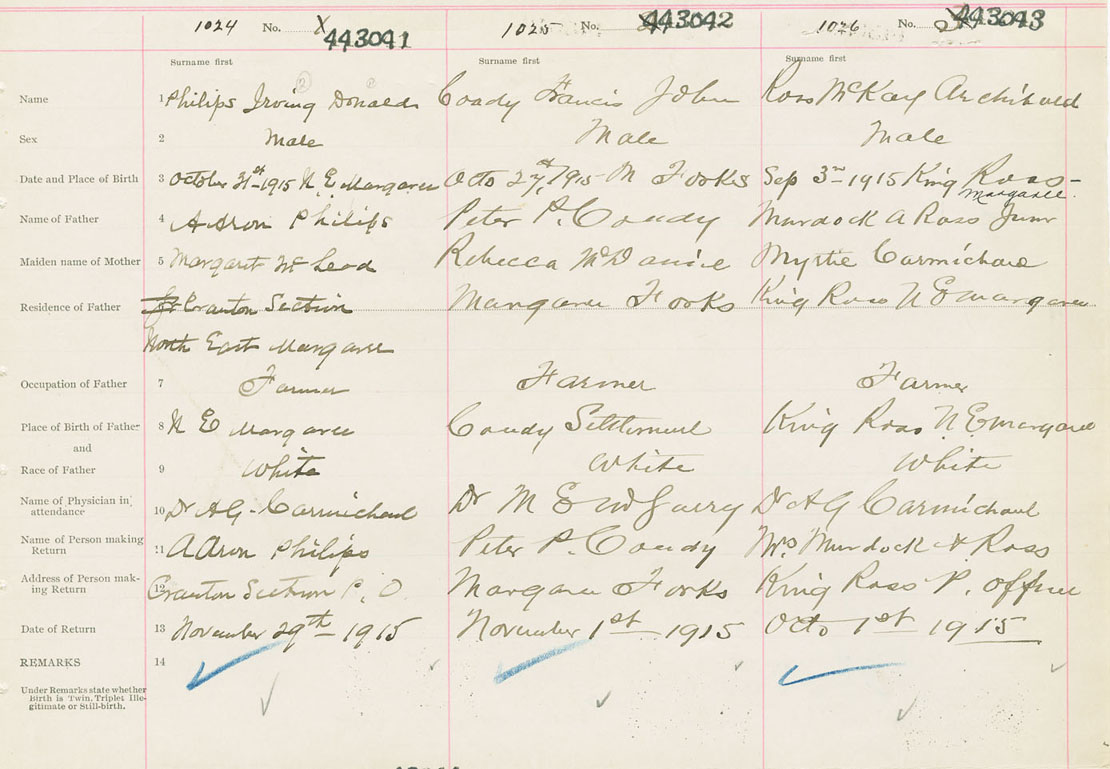 1024 No. 443041 1025 No. 443042 1026 No. 443043
Surname first Surname first Surname first
Name 1 Philips Irving Donald Coady Francis John Ross McKay Archibald
Sex 2 Male Male Male
Date and Place of Birth 3 October 31st 1915 N. E. Margaree Octo 27th 1915 M Forks Sep 3rd 1915 King Ross
Margaree
Name of Father 4 Aaron Philips Peter P. Coady Murdock A Ross Junr
Maiden name of Mother 5 Margaret McLeod Rebecca McDaniel Myrtle Carmichael
Residence of Father Cranton Section Margaree Forks King Ross N E Margaree
North East Margaree
Occupation of Father 7 Farmer Farmer Farmer
Place of Birth of Father 8 N E Margaree Coady Settlement King Ross N. E. Margaree
and
Race of Father 9 White White White
Name of Physician in attendance 10 Dr A G - Carmichael Dr M E McGarry Dr A G Carmichael
Name of Person making Return 11 Aaron Philips Peter P. Coady Mrs Murdock A Ross
Address of Person making Return 12 Cranton Section P. O. Margaree Forks King Ross P. Office
Date of Return 13 November 29th 1915 November 1st 1915 Octo 1st 1915
REMARKS 14
Under Remarks state whether
Birth is Twin, Triplet Ille-
gitimate or Still-birth.